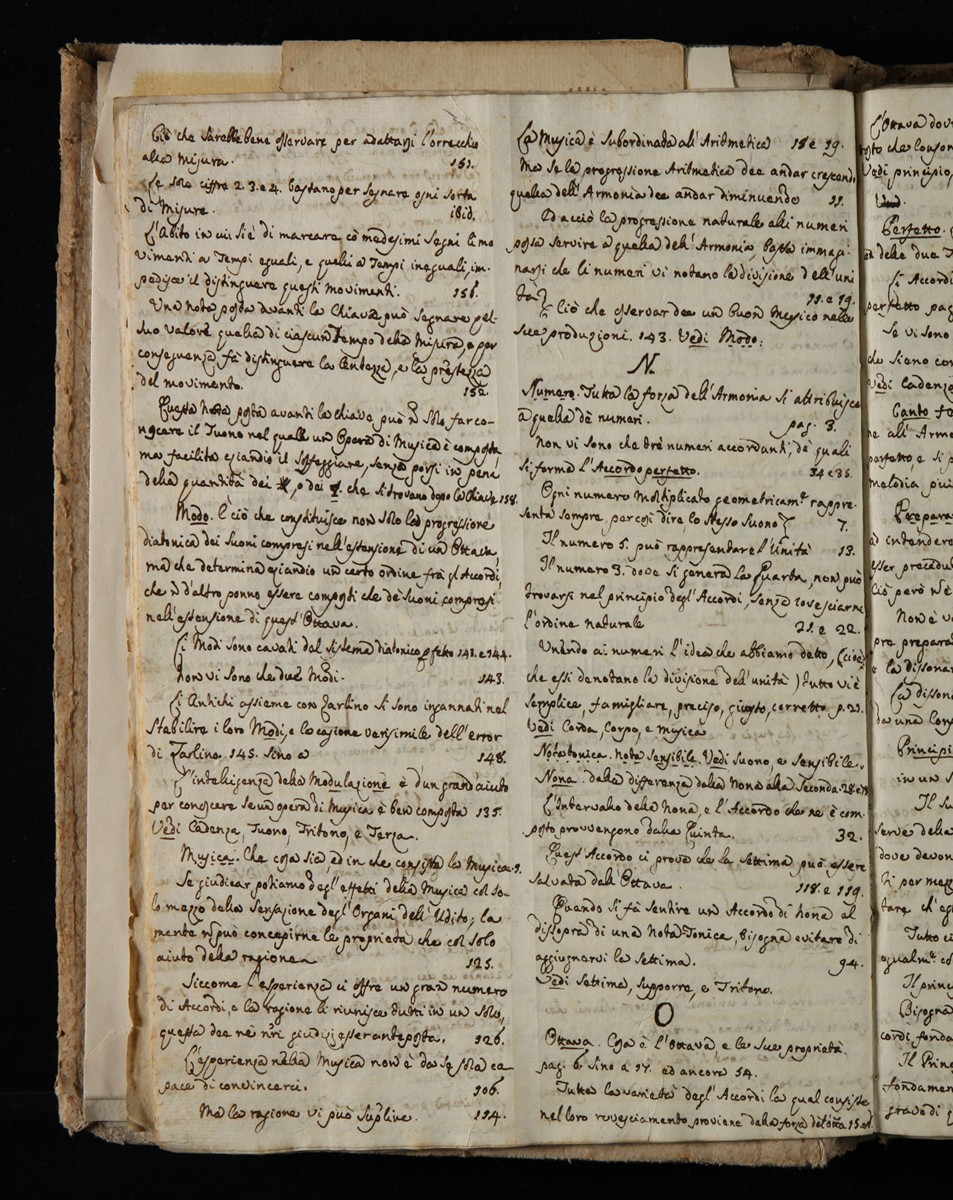 Ciò che sarebbe bene osservare per adattarsi l'orrecchio
alla Misura. 151.
Le sole ciffre 2. 3. e 4. bastano per segnare ogni sorta
di Misure. ibid.
L'Abito in cui si è di marcare cō medesimi segni li mo
vimenti a Tempi eguali, e quelli a Tempi ineguali, im-
pedisce il distinguere questi movimenti. 156.
Una nota posta avanti la Chiave può segnare pel
suo valore quello di ciascun Tempo della Misura, e per
conseguenza fà distinguere la lentezza, e la prestezza
del movimento. 152.
Questa nota posta avanti la chiave può ñ solo far co-
noscere il Tuono nel quale un Opera di Musica è composta,
ma facilita eziandio il Solfeggiare, senza porsi in pena
della quantità dei #, o dei b. che si trovano dopo la Chiave 158.
Modo. È ciò che constituisce non solo la progressione
diatonica dei Suoni compresi nell'estensione di un Ottava,
ma che determina eziandio un certo ordine frà gl'Accordi,
che ñ d'altro ponno essere composti che de Suoni compresi
nell'estensione di quest'Ottava.
Li Modi sono cavati dal sistema diatonico pfetto 142. e 144.
Non vi sono che due Modi. 143.
Li Antichi assieme con Zarlino si sono ingannati nel
stabilire i loro Modi, e la cagione verisimile dell'error
di Zarlino. 145. sino a 148.
L'intelligenza della Modulazione è d'un grand'aiuto
per conoscere se un opera di Musica è ben composta 135.
Vedi Cadenza, Tuono, Tritono, e Terza.
Musica. Che cosa sia, ed in che consista la Musica. 9.
Se giudicar potiamo degl'effetti della Musica col so-
lo mezzo della Sensazione degl'Organi dell'Udito; la
mente ñ può concepirne le proprietà che col solo
aiuto della ragione 125.
Siccome l'esperienza ci offre un gran numero
di Accordi, e la ragione li riunisce tutti in un solo,
questa dee ne nr̄i giudizi esser anteposta. 126.
L'esperienza nella Musica non è da se sola ca
pace di convincerci. 106.
Ma la ragione vi può suplire. 114.
La Musica è subordinata all'Aritmetica 18 e 19.
Ma se la progressione Aritmetica dee andar crescendo,
quella dell'Armonia dee andar diminuendo 11.
Ed acciò la progressione naturale alli numeri
possa servire a quella dell'Armonia, basta immagi-
narsi che li numeri vi notano la divisione dell'uni
tà 11. e 19.
Ciò che osservar dee un buon Musico nelle
sue produzioni. 143. Vedi Modo.
N.
Numero. Tutta la forza dell'Armonia si attribuisce
a quella de numeri. pag. 3.
Non vi sono che trè numeri accordanti, de quali
si forma l'Accordo perfetto. 34 e 35.
Ogni numero moltiplicato geometricam.e rappre-
senta sempre, per così dire lo stesso Suono 7.
Il numero 5. può rappresentare l'Unità 13.
Il numero 3. dove si genera la Quarta, non può
trovarsi nel principio degl'Accordi, senza rovesciarne
l'ordine naturale 21. e 22.
Unendo ai numeri l'idea che abbiamo detto, (cioè
che essi denotano la divisione dell'unità) tutto vi è
semplice, famigliare, preciso, giusto, corretto p. 23.
Vedi Corda, Corpo, e Musica
Nota tonica. nota sensibile. Vedi Suono, e Sensibile.
Nona. della differenza della Nona alla Seconda. 28 e
L'Intervallo della Nona, e l'Accordo che ne è com-
posto provvengono dalla Quinta. 32.
Quest'Accordo ci prova che la Settima può essere
salvata dall'Ottava. 118. e 119.
Quando si fà sentire un Accordo di nona al
dissopra di una Nota Tonica, bisogna evitare di
aggiugnervi la Settima. 94.
Vedi Settima, Supporre, e Tritono.
O
Ottava. Cosa è l'Ottava, e le sue proprietà.
pag. 6 sino a 17. ed ancora 54.
Tutta la varietà degl'Accordi la qual consiste
nel loro rovesciamento proviene dalla forza dell' 15.
L'Ottava dov
sto che lousom
Vedi principio,
Perfetto.
ed delle due T
Li Accordi
perfetto pag
Se vi sono
che siano con
Vedi Cadenza
Canto fe
ne all'Armo
perfetto, e si p
melodia più
Prepara
d intendere
esser precedu
Ciò però ñ è
Non è v
pre prepara
e la disson
La disson
da una Cons
Principi
in un s
Il su
serve della
dove devon
ti per mezz
tare ch'eg
Tutto ci
egualm.e co
Il princ
Bisogna
cordi fonda
Il Prin
fondamen
grave di q